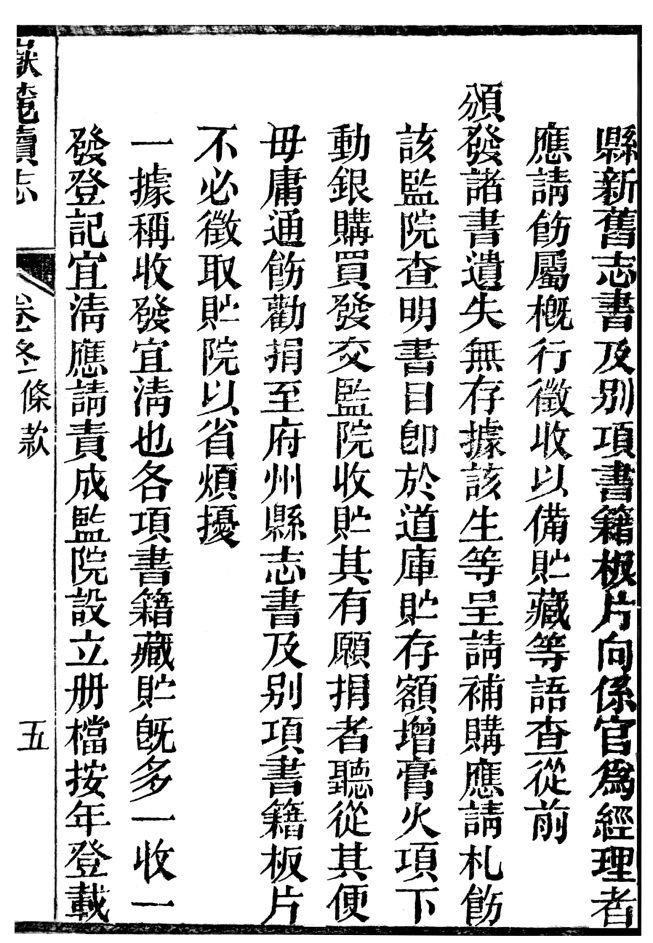 縣新舊志書及别項書籍板片向係官爲經理者
應請飭屬槪行徵收以備貯藏等語查從前
頒發諸書遺失無存據該生等呈請補購應請札飭
該監院查明書目卽於道庫貯存額增膏火項下
動銀購買發交監院收貯其有願捐者聽從其便
毋庸通飭勸捐至府州縣志書及别項書籍板片
不必徵取貯院以省煩擾
一據稱收發宜淸也各項書籍藏貯旣多一收一
發登記宜淸應請責成監院設立册檔按年登載
嶽麓續志
卷終 條款
五